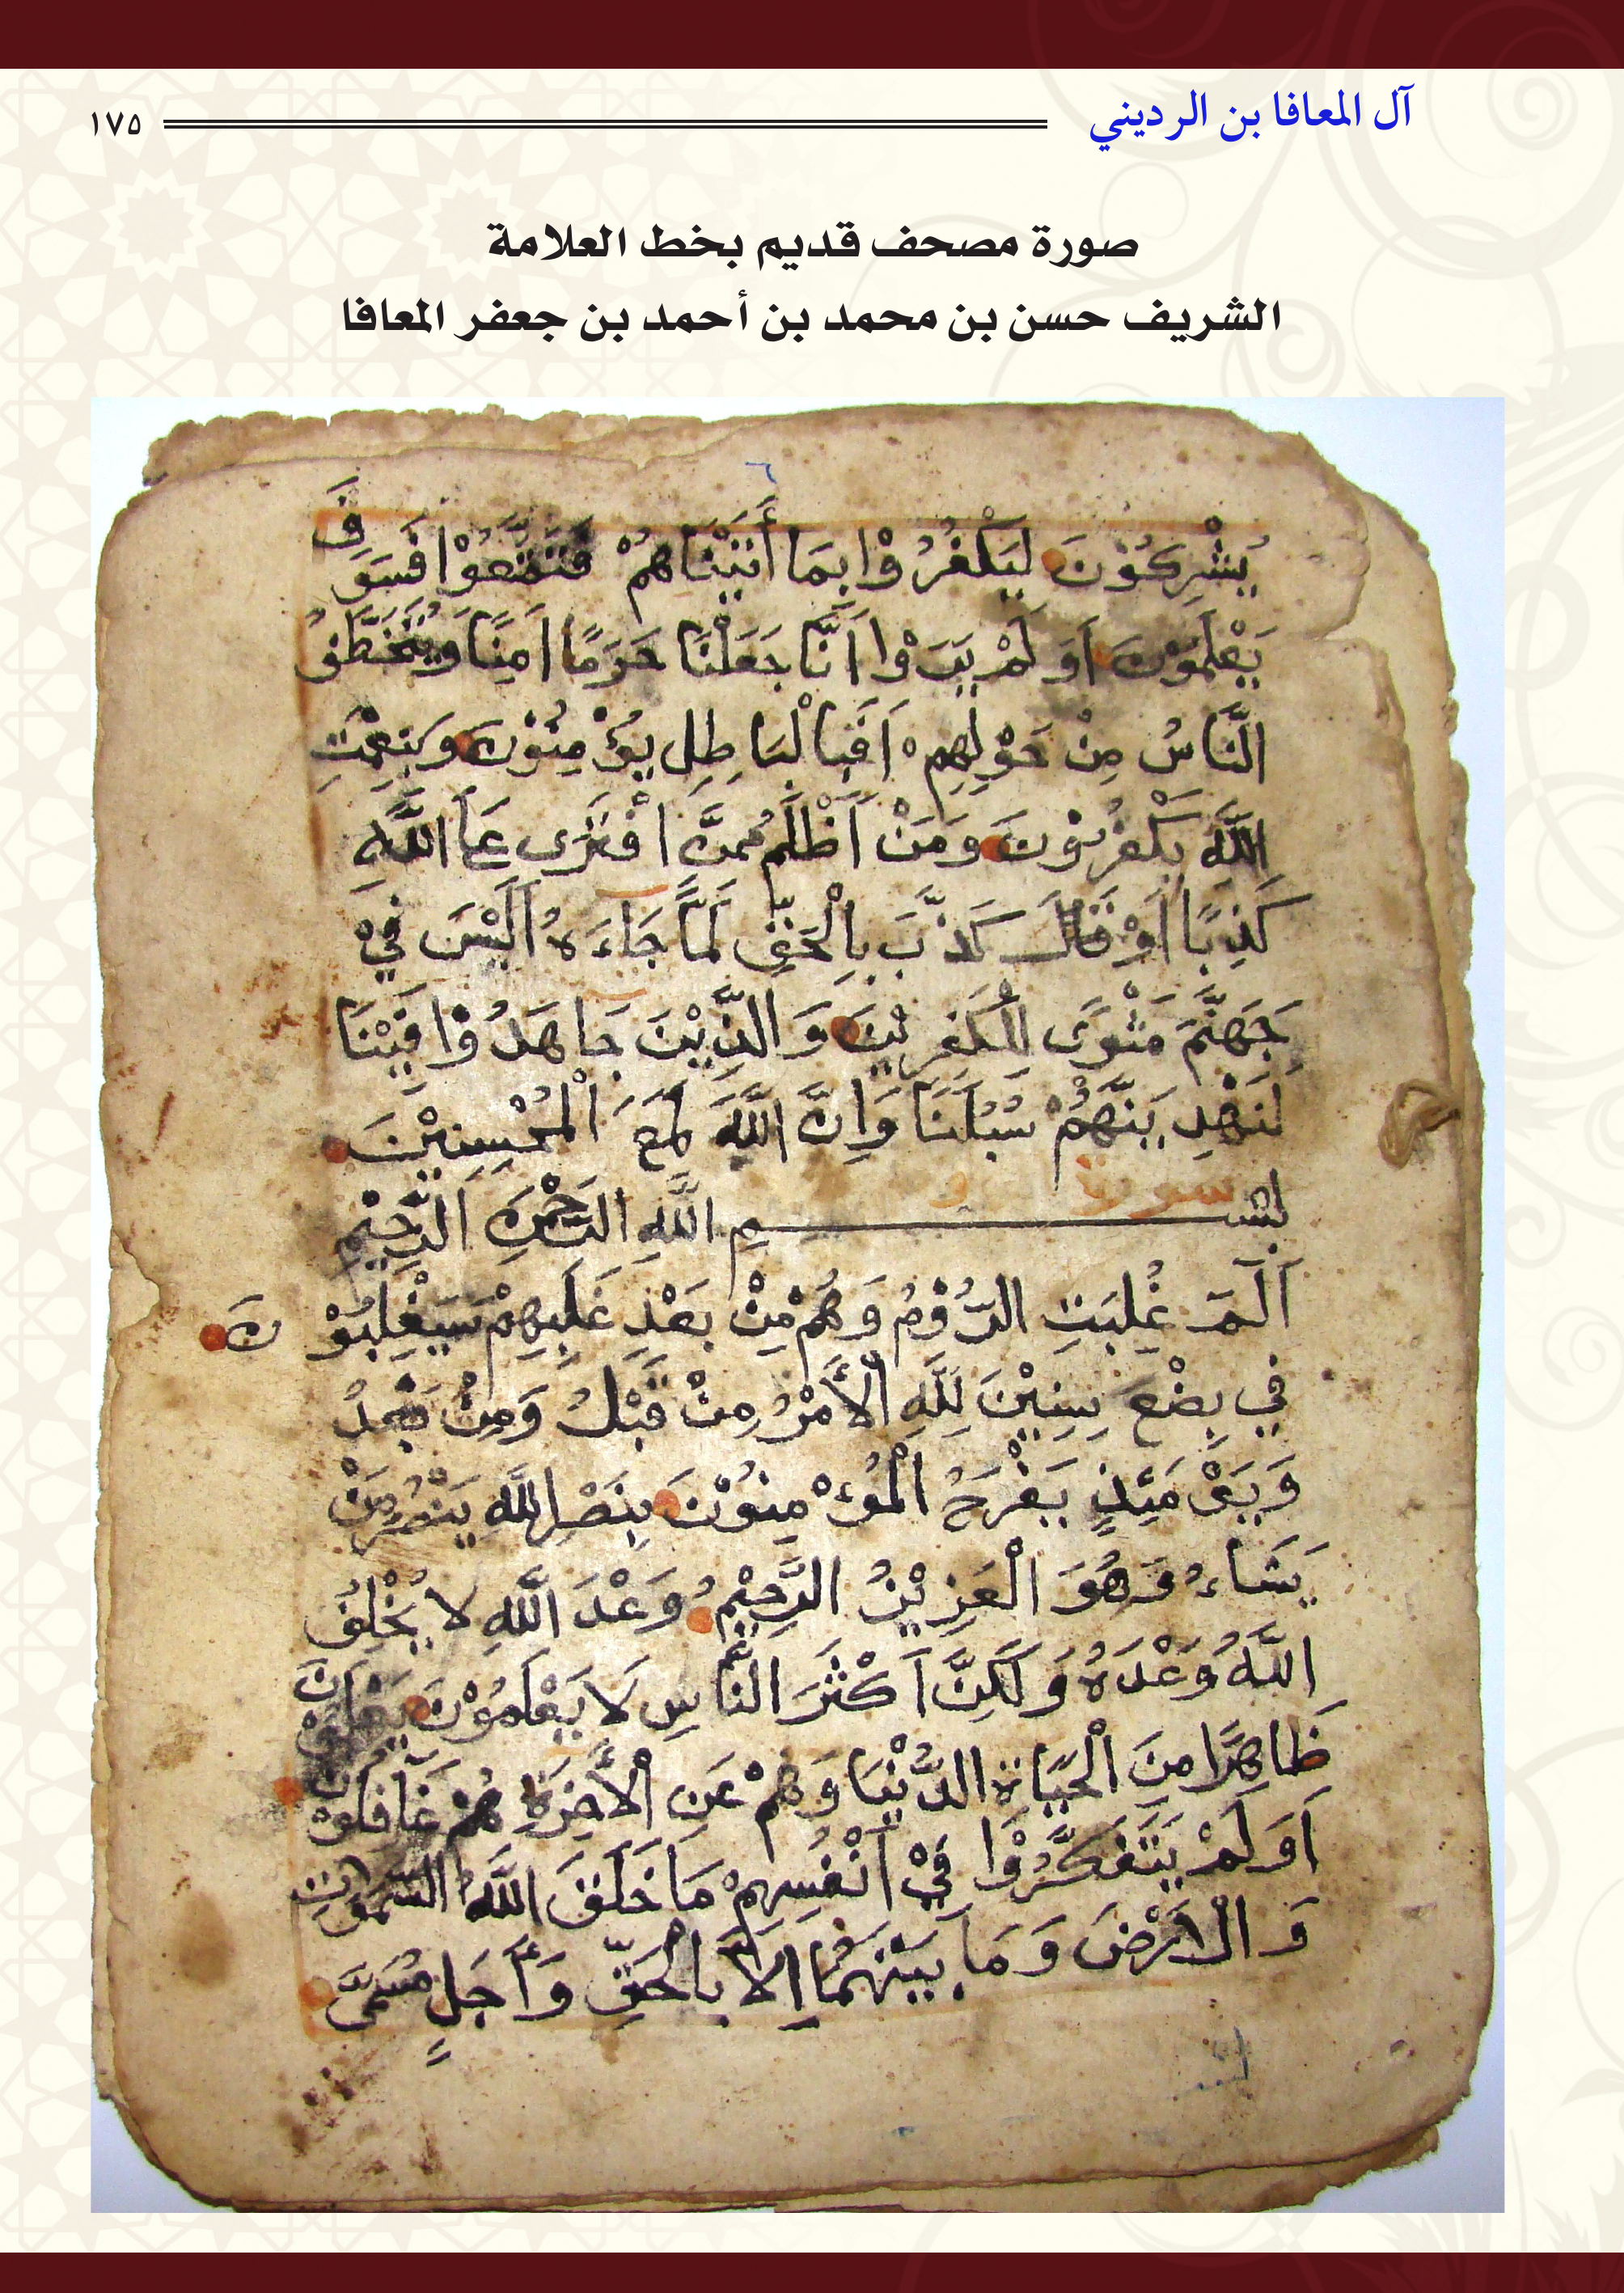 آل المعافا بن الرديني ١٧٥
صورة مصحف قديم بخط العلامة
الشريف حسن بن محمد بن أحمد بن جعفر المعافا
يُشْرِكُوْنَ لِيَكْفُرُوْا بِمَا أَتَيْنَاهُمْ فَتَمَتَّعُوْا فَسَوْفَ
يَعْلَمُوْنَ اَوَلَمْ يَرَوْا اَنَّا جَعَلْنَا حَرَمًا اَمِنًا وَيُتَخَطَّفُ
النَّاسُ مِنْ حَوْلِهِمْ اَفَبِالْبَاطِلِ يُؤْمِنُوْنَ وَبِنِعْمَتِ
اللَّهِ يَكْفُرُوْنَ وَمَنْ اَظْلَمُ مِمَّنْ افْتَرَى عَلَى اللَّهِ
كَذِبًا اَوْ قَالَ كَذَّبَ بِالْحَقِّ لَمَّا جَاءَهُ اَلَيْسَ فِيْ
جَهَنَّمَ مَثْوَى لِلْكَفِرِيْنَ وَالَّذِيْنَ جَاهَدُوْا فِيْنَا
لَنَهْدِيَنَّهُمْ سُبُلَنَا وَاِنَّ اللَّهَ لَمَعَ الْمُحْسِنِيْنَ
سورة
بِسْــــمِ اللَّهِ الرَّحْمَنِ الرَّحِيْمِ
اَلَمَ غُلِبَتِ الرُّوْمُ وَهُمْ مِنْ بَعْدِ غَلَبِهِمْ سَيَغْلِبُوْنَ
فِي بِضْعِ سِنِيْنَ لِلَّهِ الْأَمْرُ مِنْ قَبْلُ وَمِنْ بَعْدُ
وَيَوْمَئِذٍ يَفْرَحُ الْمُؤْمِنُوْنَ بِنَصْرِ اللَّهِ يَنْصُرُ مَنْ
يَشَاءُ وَهُوَ الْعَزِيْزُ الرَّحِيْمُ وَعْدَ اللَّهِ لا يُخْلِفُ
اللَّهُ وَعْدَهُ وَلَكِنَّ اَكْثَرَ النَّاسِ لَا يَعْلَمُوْنَ يَعْلَمُوْنَ
ظَاهِرًا مِنَ الْحَيَاةِ الدُّنْيَا وَهُمْ عَنِ الْأَخِرَةِ هُمْ غَافِلُوْنَ
اَوَلَمْ يَتَفَكَّرُوْا فِيْ أَنْفُسِهِمْ مَا خَلَقَ اللَّهُ السَّمَوَتِ
وَالْاَرْضَ وَمَا بَيْنَهُمَا اِلَّا بِالْحَقِّ وَأَجَلٍ مُسَمَّى